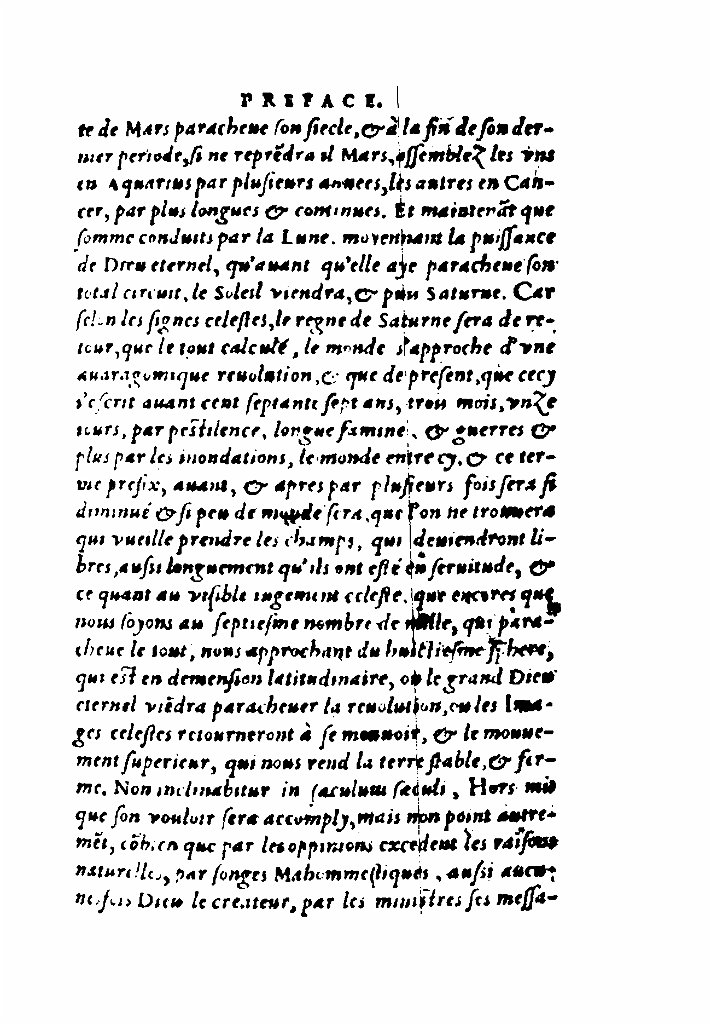 PREFACE.
te de Mars paracheue son siecle, & à la fin de son der-
nier periode, si ne reprẽdra il Mars, assemblez les vns
en Aquarius par plusieurs annees, les autres en Can-
cer, par plus longues & continues. Et maintenãt que
somme conduits par la Lune, moyennant la puissance
de Dieu eternel, qu'auant qu'elle aye paracheue son
total circuit, le Soleil viendra, & puis Saturne. Car
selon les signes celestes, le regne de Saturne sera de re-
tour, que le tout calculé, le monde s'approche d'vne
anaragonique reuolution, & que de present, que cecy
s'escrit auant cent septante sept ans, trois mois, vnze
iours, par pestilence, longue famine, & guerres &
plus par les inondations, le monde entre cy, & ce ter-
me prefix, auant, & apres par plusieurs fois sera si
diminué & si peu de monde sera, que l'on ne trouuera
qui vueille prendre les champs, qui deuiendront li-
bres, aussi longuement qu'ils ont esté en seruitude, &
ce quant au visible iugement celeste, que encores que
nous soyons au septiesme nombre de mille, qui para-
cheue le tout, nous approchant du huictiesme sphere,
qui est en demension latitudinaire, ou le grand Dieu
eternel viẽdra paracheuer la reuolution, ou les Ima-
ges celestes retourneront à se mouuoir, & le mouue-
ment superieur, qui nous rend la terre stable, & fer-
me. Non inclinabitur in sæculum sæculi, Hors mis
que son vouloir sera accomply, mais non point autre-
mẽt, cõbien que par les oppinions excedent les raisons
naturelles, par songes Mahommestiques, aussi aucu-
nesfois Dieu le createur, par les ministres ses messa-